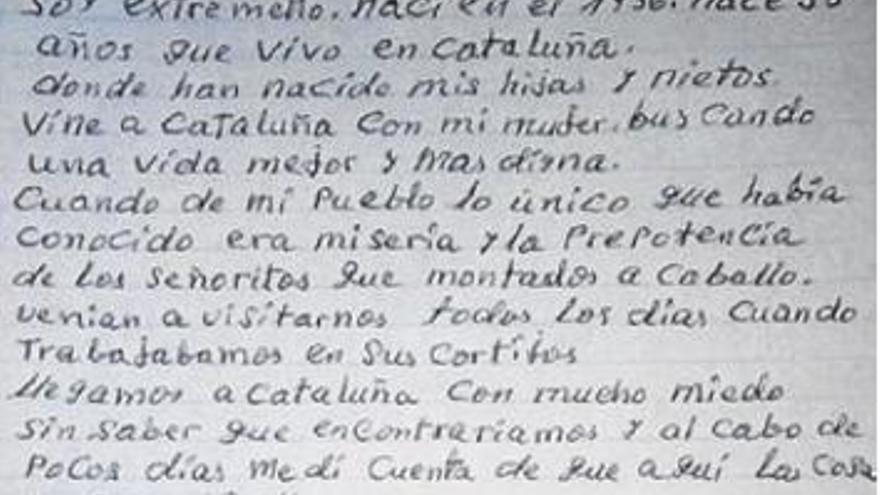 Soy extremeño. nací en el 1936. hace 50
años que vivo en Cataluña.
donde han nacido mis hijas y nietos.
Vine a Cataluña Con mi mujer. bus Cando
una vida mejor y mas digna.
Cuando de mi Pueblo lo único que había
Conocido era misería y la Prepotencia
de los Señoritos que montados a Caballo.
venian a visitarnos todos los días Cuando
Trabajabamos en Sus Cortijos
llegamos a Cataluña Con mucho miedo
Sin Saber que enContraríamos y al Cabo de
Pocos días me di Cuenta de que aquí las Cosa